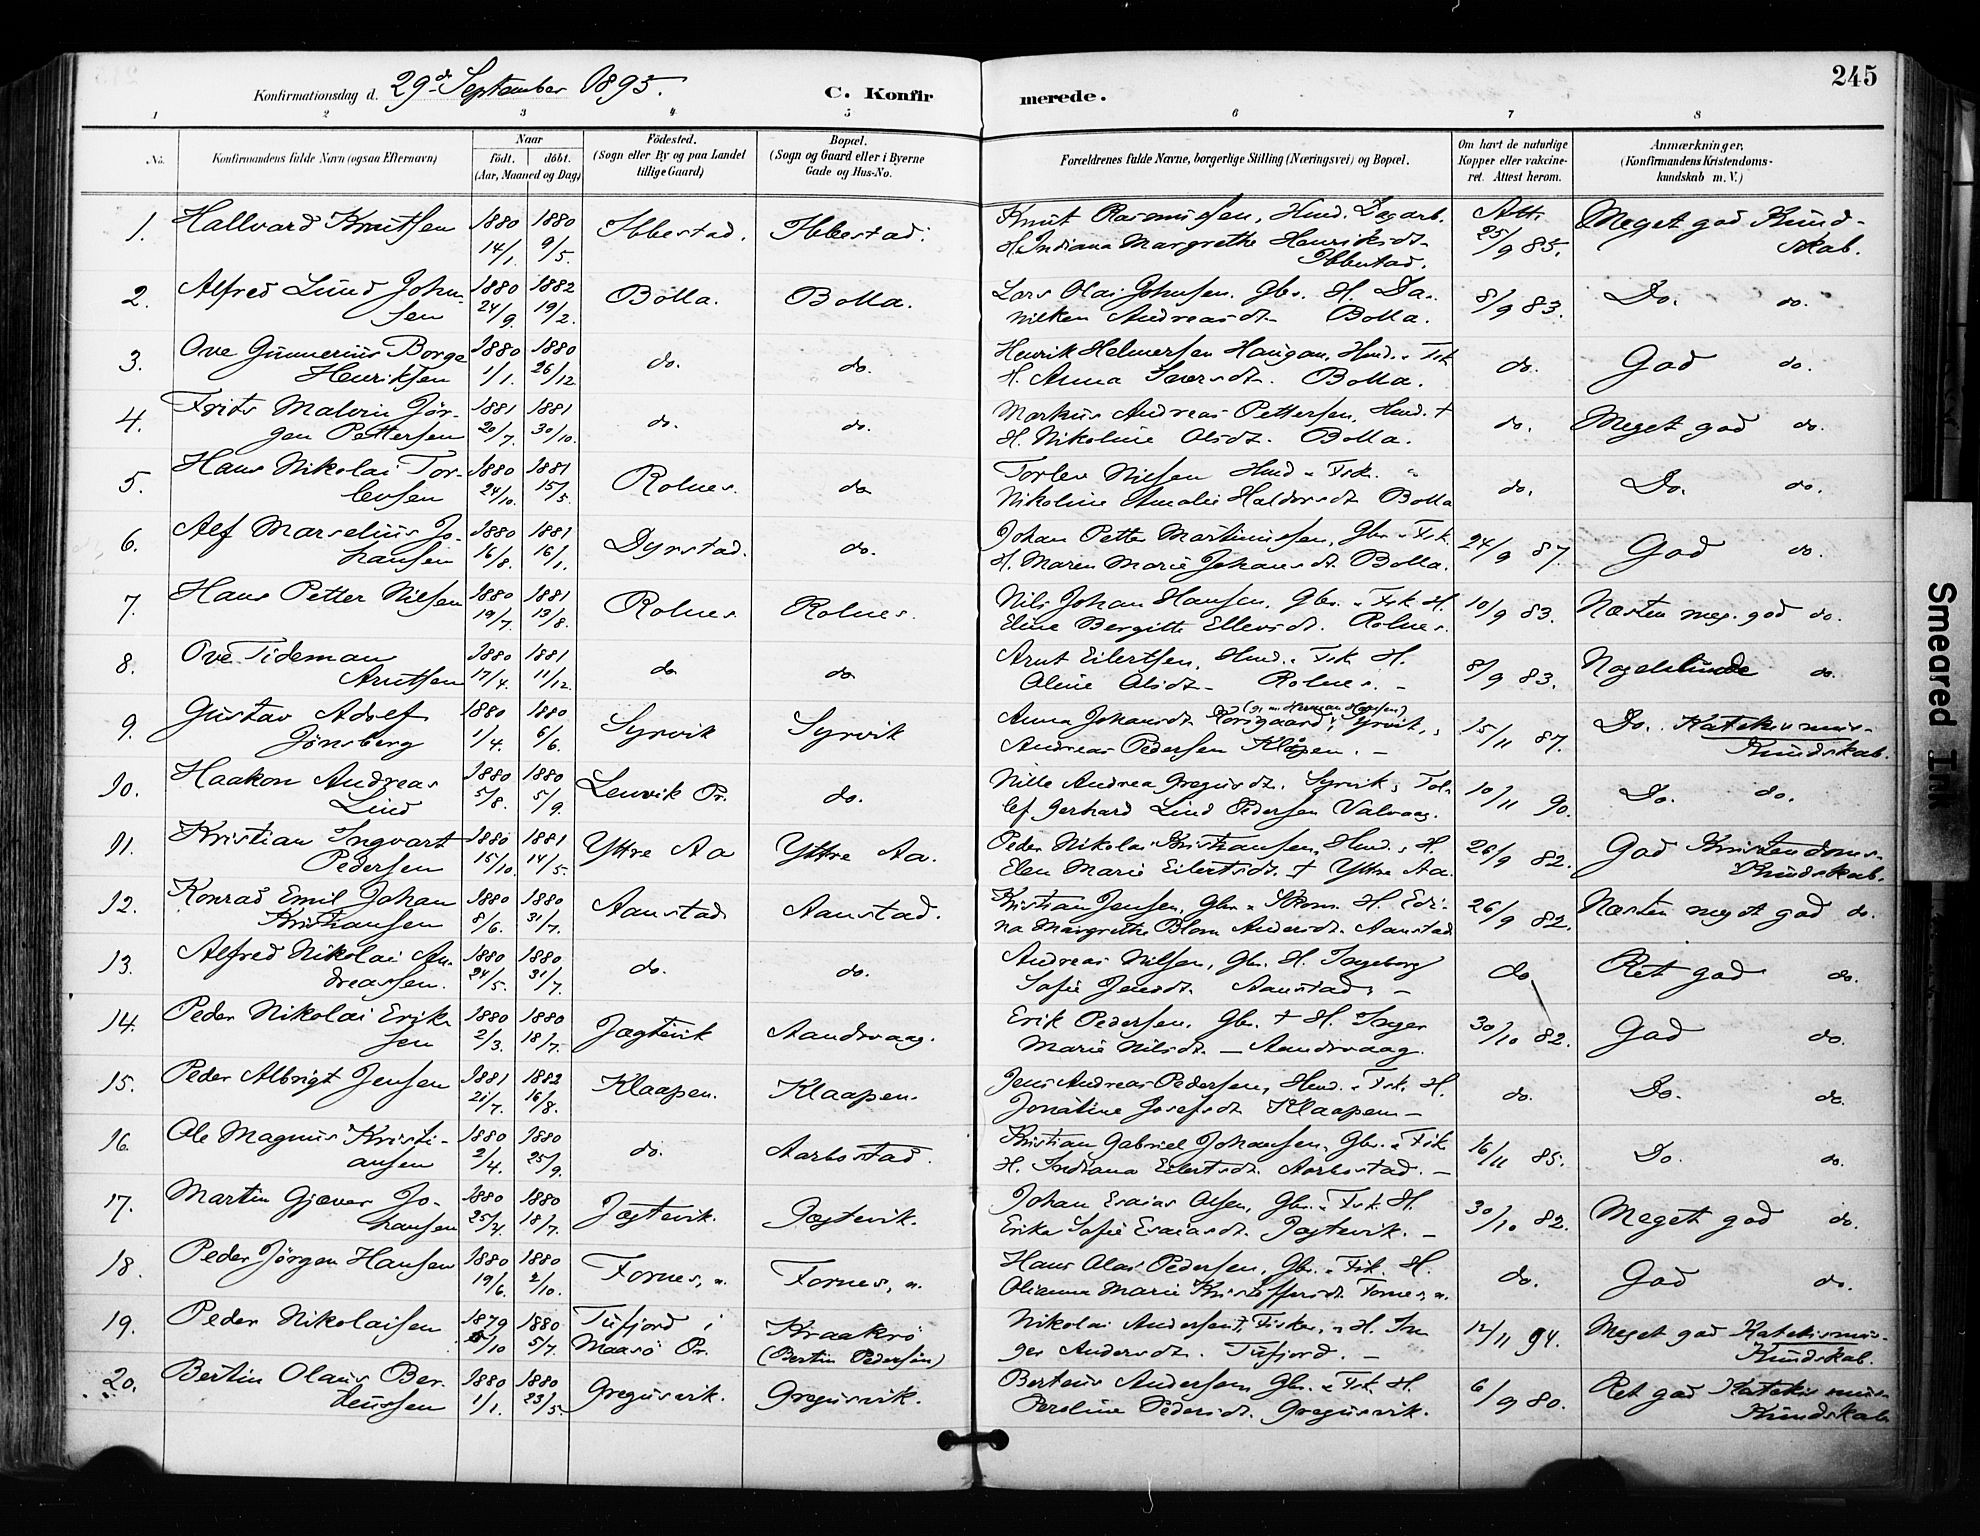 245
Konfirmationsdag d. 29de September 1895.
C. Konfirmerede.
1 2 3 4 5 6 7 8
No.
Konfirmandens fulde Navn (ogsaa Efternavn)
Naar
födt. döbt.
(Aar, Maaned og Dag)
Födested.
(Sogn eller By og paa Landet
tillige Gaard)
Bopæl.
(Sogn og Gaard eller i Byerne
Gade og Hus-No.
Forældrenes fulde Navne, borgerlige Stilling (Næringsvei) og Bopæl.
Om havt de naturlige
Kopper eller vakcine-
ret. Attest herom.
Anmærkninger,
(Konfirmandens Kristendoms-
kundskab m. V.)
1. Hallvard Knutsen 1880 1880 Ibbestad. Ibbestad. Knut Rasmussen, Hmd. Dagarb. Att. Meget god Kund-
14/1. 9/5. H. Indiana Margrethe Henriksdt. 25/9 85. skab.
Ibbestad.
2. Alfred Lund John- 1880 1882 Bolla. Bolla. Lars Olai Johnsen. Gbr. H. Da- 8/9 83. Do. do.
sen 24/9. 19/2. niken Andreasdt. Bolla.
3. Ove Gunnerius Borge 1880 1880 do. do. Henrik Helmersen Haugan, Hmd. Fsk. do. God do.
Henriksen 1/1. 26/12 H. Anna Iversdt. Bolla.
4. Frits Malvin Jør- 1881 1881 do. do. Markus Andreas Pettersen, Hmd. + do. Meget god do.
gen Pettersen 20/7. 30/10. H. Nikoline Olsdt. Bolla.
5. Hans Nikolai Tor- 1880 1881 Rolnes. do Torlev Nilsen Hmd. Fsk. do. Do. do.
levsen 24/10. 15/5. Nikoline Amalie Haldorsdt Bolla
6. Alf Marselius Jo- 1880 1881 Dyrstad. do. Johan Petter Martinussen, Gbr. Fsk. 24/9 87. God do.
hansen 16/8. 16/1. H. Maren Marie Johansdt Bolla.
7. Hans Petter Nilsen 1880 1881 Rolnes. Rolnes. Nils Johan Hansen, Gbr. Fsk H. 10/9 83. Næsten meg. god do.
19/7. 13/8. Eline Bergitte Ellevsdt. Rolnes.
8. Ove Tideman 1880 1881 do do Arnt Eilertsen, Hmd. Fsk. H. 8/9 83. Nogenlunde do.
Arntsen 17/4. 11/12. Oline Olsdt. Rolnes. -
9. Gustav Adolf 1880 1880 Syrvik Syrvik Anna Johansdt (g. m. Herman Hansen) 15/11 87. Do. Katekismus-
Jønsberg 1/4. 6/6. Andreas Pedersen Klåpen. - Kundskab.
10. Haakon Andreas 1880 1880 Lenvik Pr. do. Nille Andrea Gregusdt. Syrvik, Tol- 10/11 90. Do. do.
Lind 5/8. 5/9. lef Gerhard Lind Pedersen Valvaag.
11. Kristian Ingvart 1880 1881 Yttre Aa Yttre Aa. Peder Nikolai Kristiansen, Hmd. H. 26/9 82. God Kristendoms-
Pedersen 15/10. 14/5. Elen Marie Eilertsdt. + Yttre Aa. Kundskab.
12. Konrad Emil Johan 1880 1880 Aanstad Aanstad. Kristian Jensen, Gbr. H. Edi- 26/9 82. Næsten meget god do.
Kristiansen 8/6. 31/7. na Margrethe Blom Andersdt. Aanstad
13. Alfred Nikolai An- 1880 1880 do. do. Andreas Nilsen, Gbr. H. Ingeborg do Ret god do.
dreassen. 24/5. 31/7. Sofie Jensdt. Aanstad. -
14. Peder Nikolai Erik- 1880 1880 Jægtevik Aandvaag. Erik Pedersen. Gbr. + H. Inger 30/10 82. God do.
sen 2/3. 18/7. Marie Nilsdt. - Aandvaag.
15. Peder Albrigt Jensen 1881 1882 Klaapen. Klaapen. Jens Andreas Pedersen, Hmd. Fsk. H. do. Do. do.
21/7. 16/8. Jonatine Josefsdt. Klaapen -
16. Ole Magnus Kristi- 1880 1880 do. Aarbostad. Kristian Gabriel Johansen, Gbr. Fsk. 16/11 85. Do. do.
ansen 2/4. 25/9. H. Indiana Eilertsdt. Aarbostad. -
17. Martin Gjæver Jo- 1880 1880 Jægtevik. Jægtevik. Johan Esaias Olsen, Gbr. Fsk. H. 30/10 82. Meget god do.
hansen 25/4. 18/7. Erika Sofie Esaiasdt. Jægtevik. -
18. Peder Jörgen Hansen 1880 1880 Fornes, n. Fornes, n. Hans Olai Pedersen, Gbr. Fsk. H. do. God do.
19/6. 2/10. Olianna Marie Kristoffersdt Fornes, n.
19. Peder Nikolaisen 1879 1880 Tufjord i Kraakrö Nikolai Andersen +, Fisker, H. In- 12/11 94. Meget god Katekismus-
/10 5/7. Maasö Pr. (Bertin Pedersen) ger Andersdt. Tufjord. - Kundskab.
20. Bertin Olaus Ber- 1880 1880 Gregusvik. Gregusvik. Berteus Andersen Gbr. Fsk. H. 6/9 80. Ret god Katekismus-
teussen 1/1. 23/5. Pedersdt. Gregusvik. Kundskab
Smeared Ink